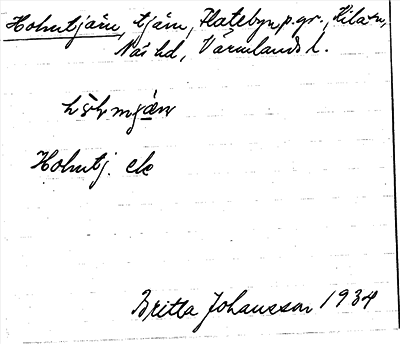 Holmtjärn, tjärn, Flatebyn p. gr., Hila sn,
Näs hd, Värmlands l.
Holmtj. ek
Britta Johansson 1934